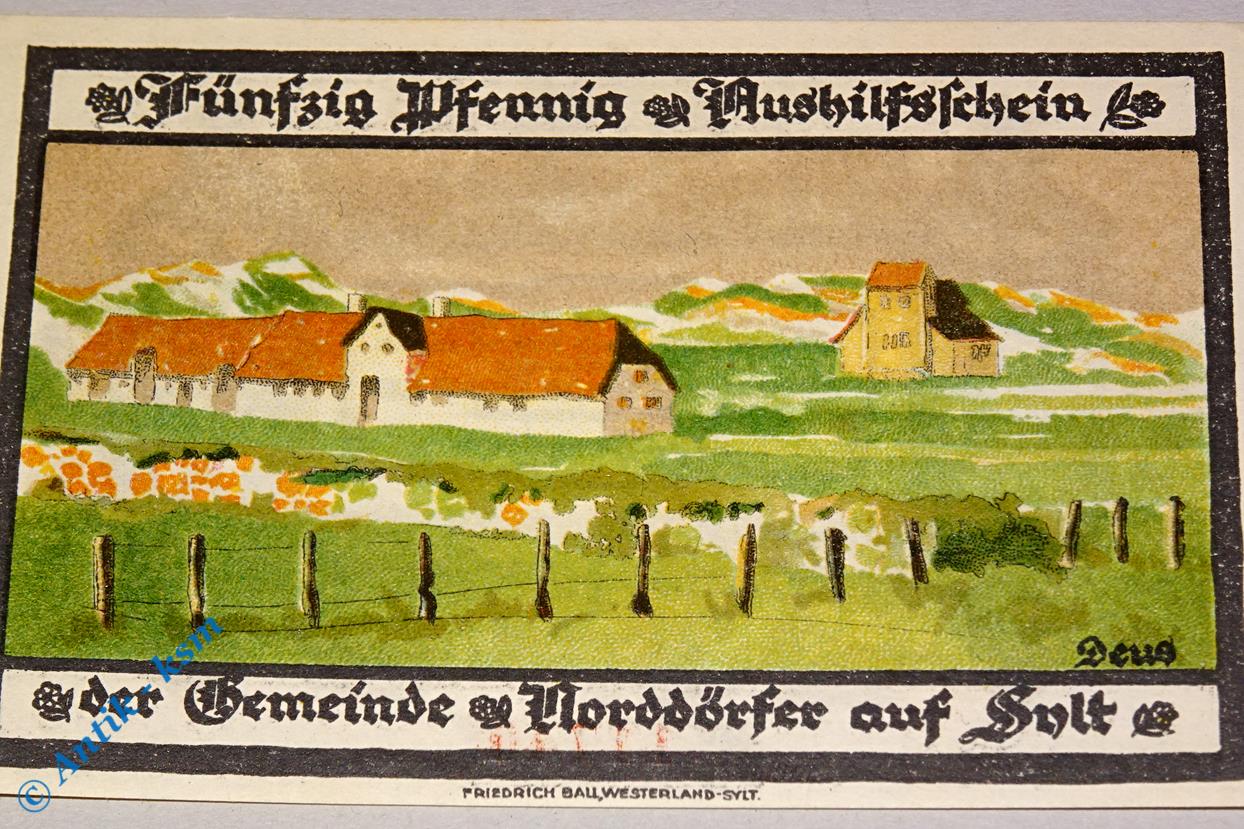 Fünfzig Pfennig Aushilfsschein
Deus
der Gemeinde Norddörfer auf Sylt
FRIEDRICH BALL, WESTERLAND-SYLT.
© Antik - ksm